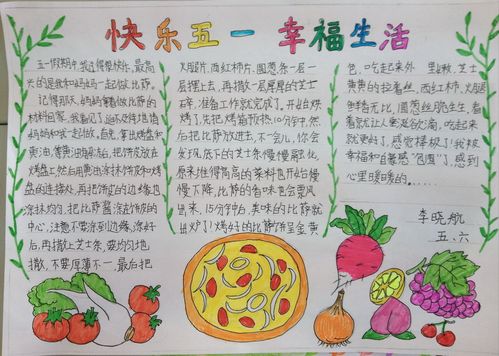 快乐五一 幸福生活
五一假期中，我过得很快乐，最高
兴的是我和妈妈一起做比萨。
记得那天，妈妈拿着做比萨的
材料回家，我看见了，迫不及待地请
妈妈和我一起做。首先，拿出烤盘和
黄油，等黄油融化后，把饼皮放在
烤盘上，然后用黄油涂抹饼皮和烤
盘的连接处，再把饼的边缘也
涂抹均匀。把比萨酱涂在饼皮的中
心，注意不要涂到边缘，涂好
后，再撒上芝士条，要均匀地
撒，不要厚薄不一，最后把
火腿片、西红柿片、圆葱条一层一
层摆上去，再撒一层厚厚的芝士
碎，准备工作就完成了，开始烘
烤了，先把烤箱预热，10分钟，然
后把比萨放进去，不一会儿，你会
发现，底下的芝士条慢慢融化，
原来堆得高高的菜料也开始慢
慢下降，比萨的香味也会飘
出来，15分钟后，美味的比萨就
出炉了！烤好的比萨饼呈金黄
色，吃起来外 里嫩，芝士
黄黄的拉着丝，西红柿、火腿
但粘无比，圆葱丝脆生生，看
着就让人垂涎欲滴，吃起来
就更好了，感觉棒极了！我被
幸福和自豪感“包围”了，感到
心里暖暖的……
李晓航
五、六